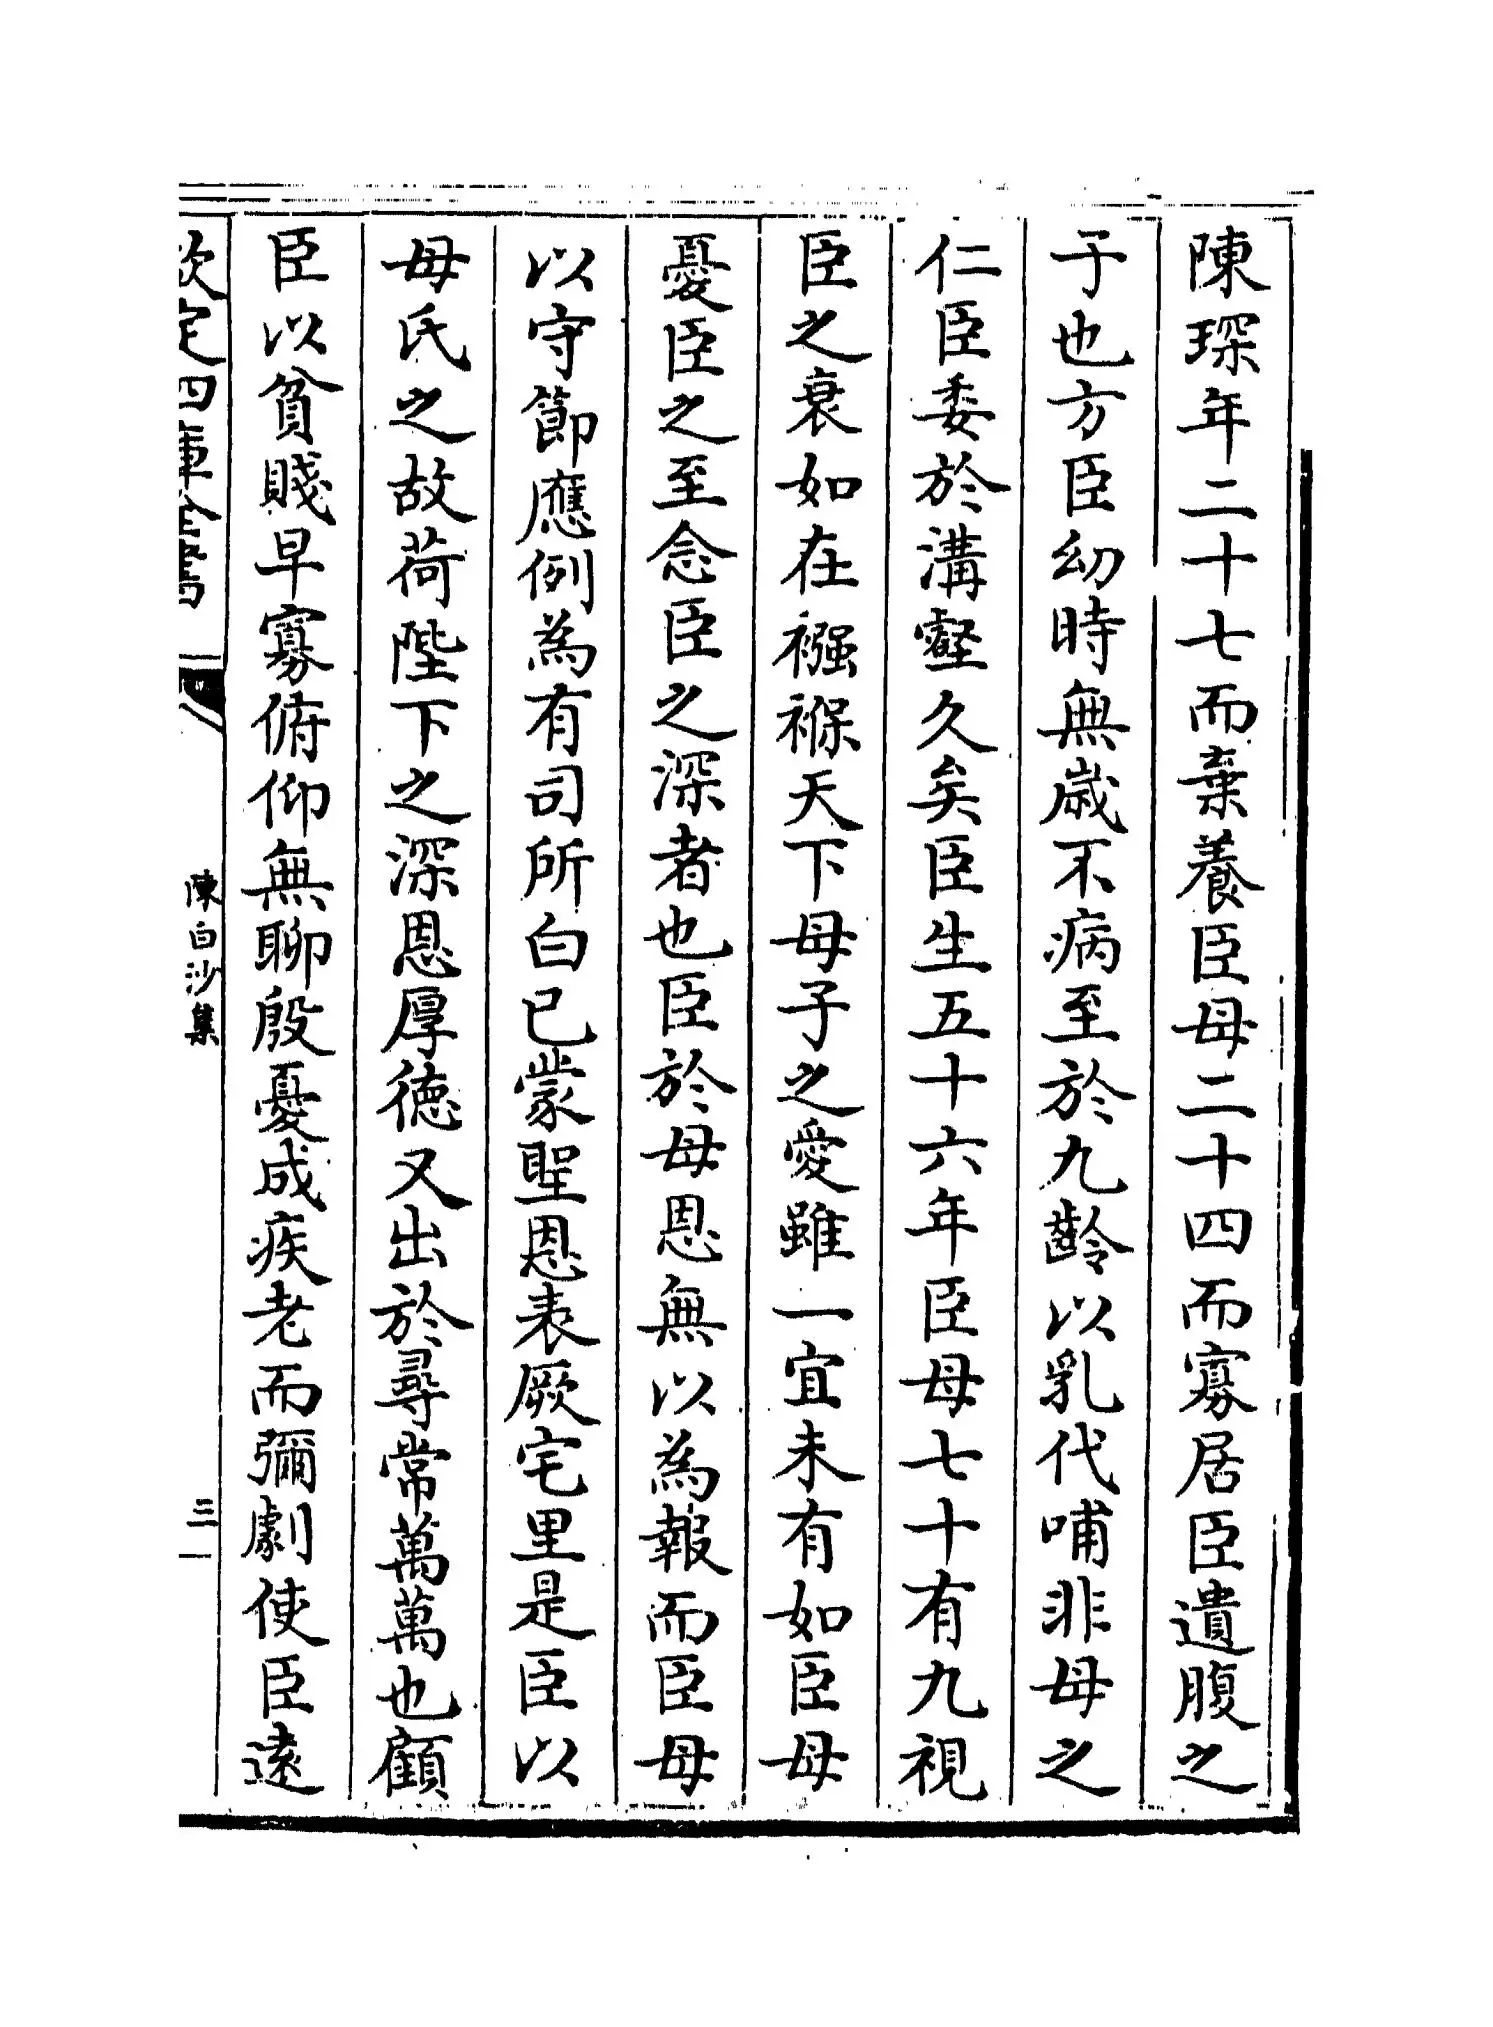 陳琛年二十七而棄養臣母二十四而寡居臣遺腹之
子也方臣幼時無歲不病至於九齡以乳代哺非母之
仁臣委於溝壑久矣臣生五十六年臣母七十有九視
臣之衰如在襁褓天下母子之愛雖一宜未有如臣母
憂臣之至念臣之深者也臣於母恩無以為報而臣母
以守節應例為有司所白已蒙聖恩表厥宅里是臣以
母氏之故荷陛下之深恩厚德又出於尋常萬萬也顧
臣以貧賤早寡俯仰無聊殷憂成疾老而彌劇使臣遠
欽定四庫全書
陳白沙集
三